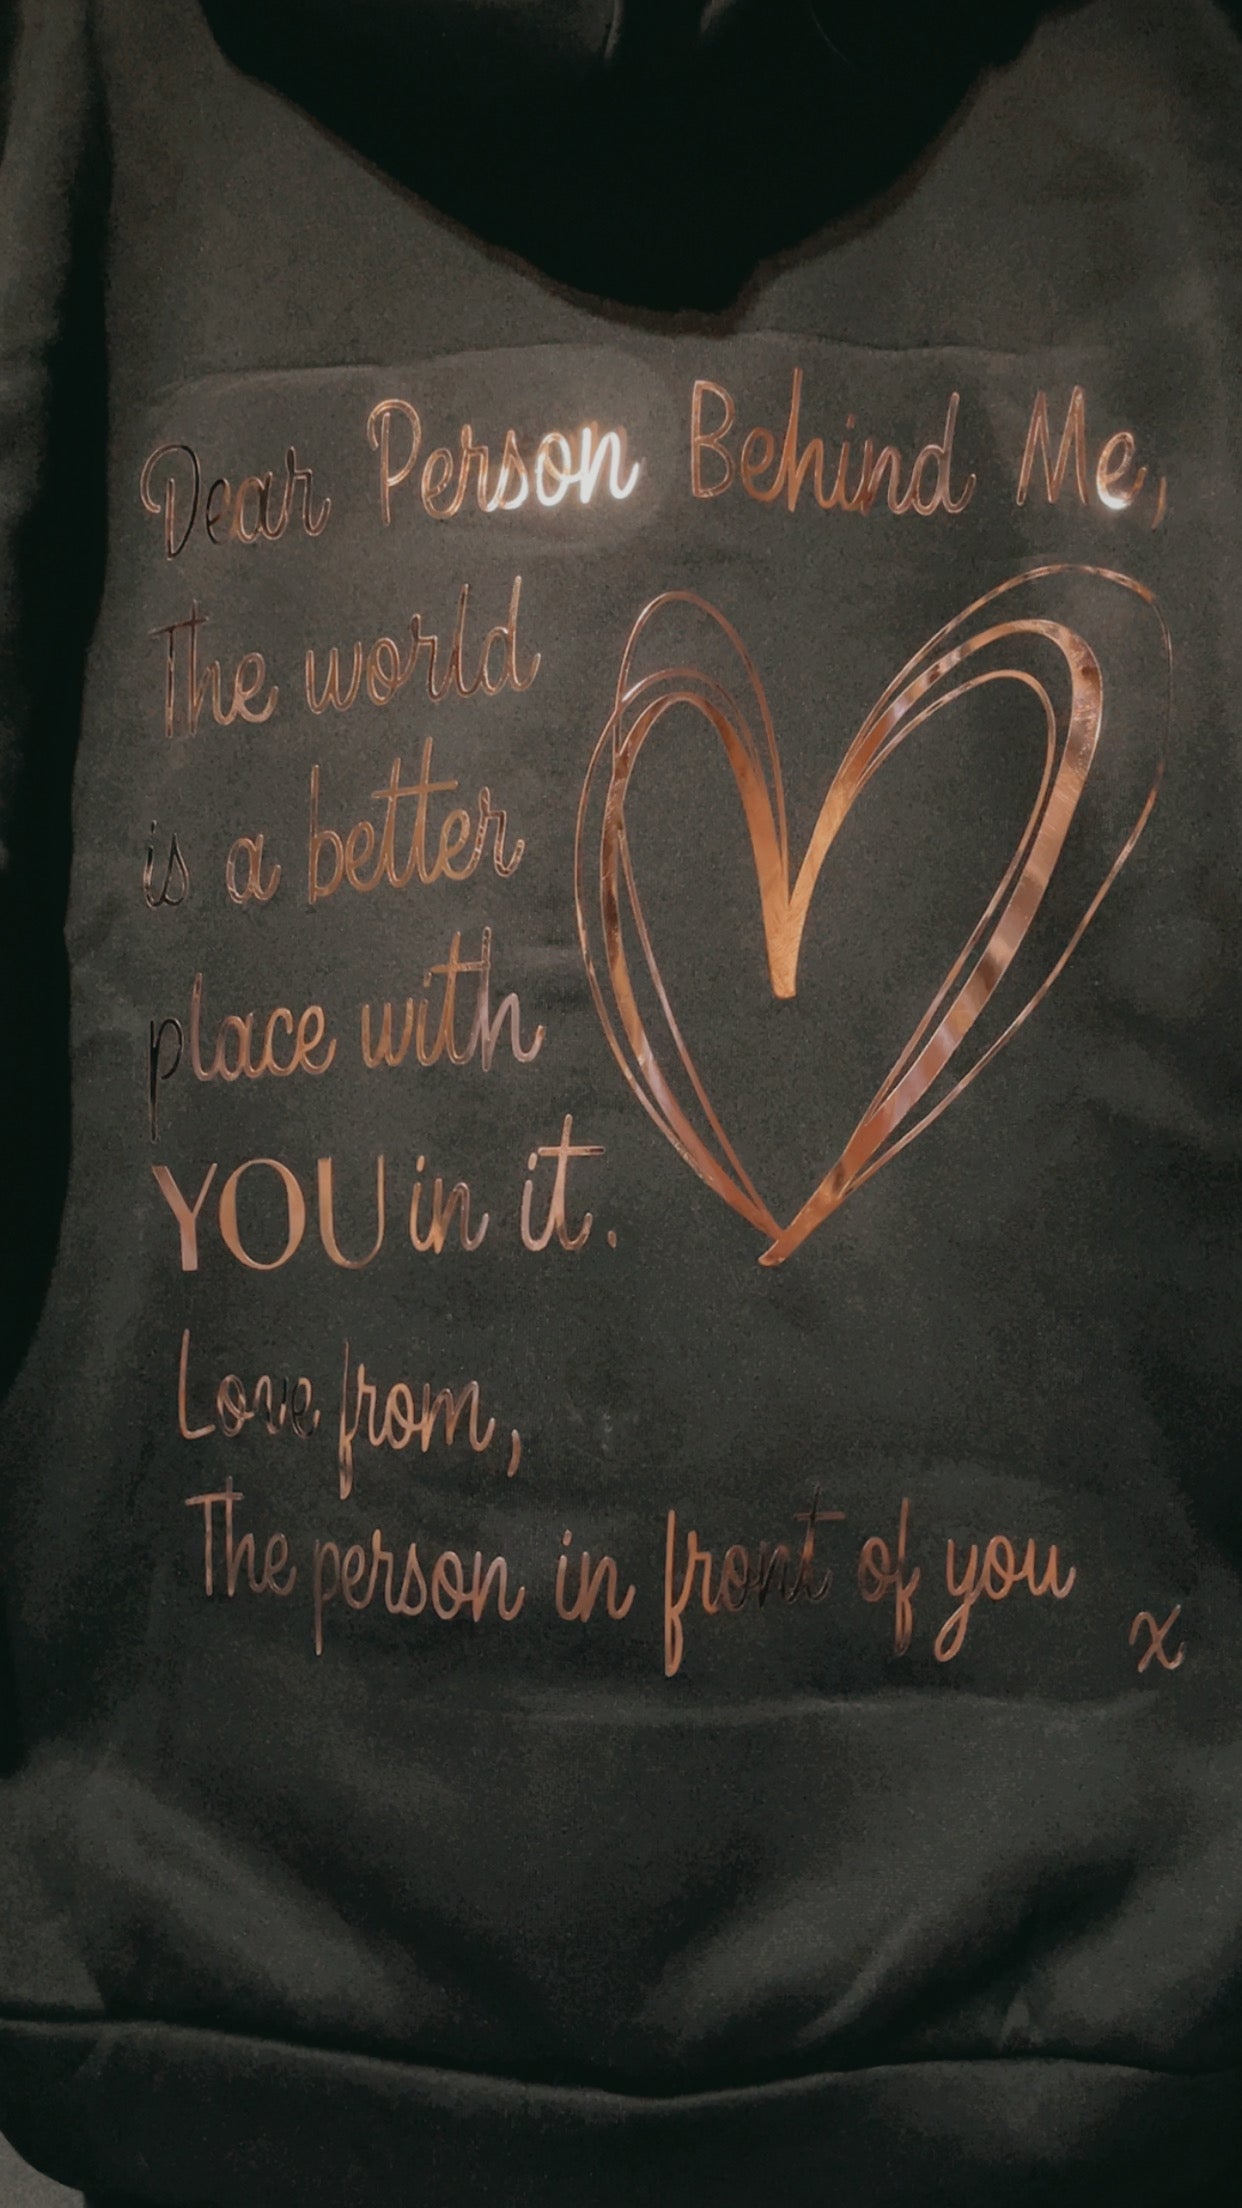 Dear Person Behind Me,
The world
is a better
place with
YOU in it.
Love from,
The person in front of you
x